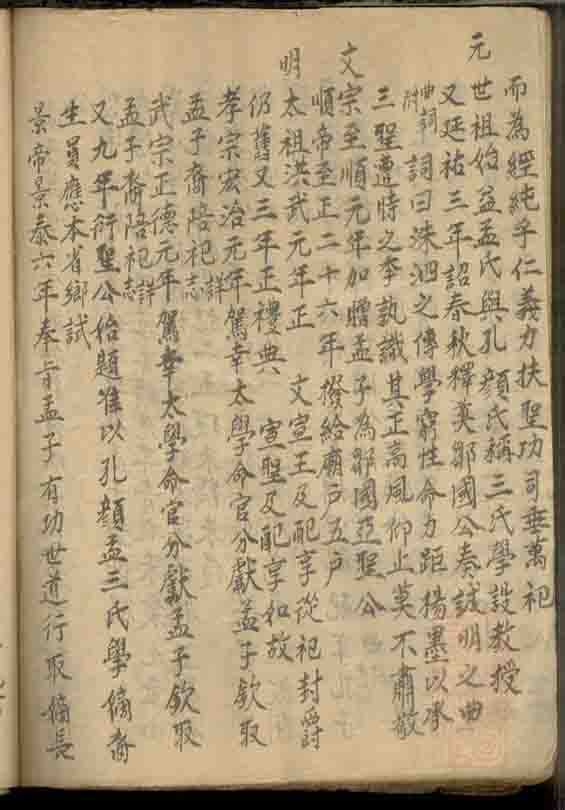 而為經純乎仁義力扶聖功司垂萬祀
元
世祖始益孟氏與孔顏氏稱三氏學設教授
又延祐三年詔春秋釋奠鄒國公奏誠明之曲
曲詞附 詞曰洙泗之傳學窮性命力距楊墨以承
三聖遭時之季孰識其正高風仰止莫不肅敬
文
宗至順元年加贈孟子為鄒國亞聖公
順帝至正二十六年撥給廟户五户
明
太祖洪武元年正 文宣王及配享從祀封爵
仍舊又三年正禮典 宣聖及配享如故
孝宗宏治元年駕幸太學命官分獻孟子欽取
孟子裔陪祀詳志
武宗正德元年駕幸太學命官分獻孟子欽取
孟子裔陪祀詳志
又九年衍聖公始題准以孔顏孟三氏學備齋
生員應本省鄉試
景帝景泰六年奉旨孟子有功世道行取備長